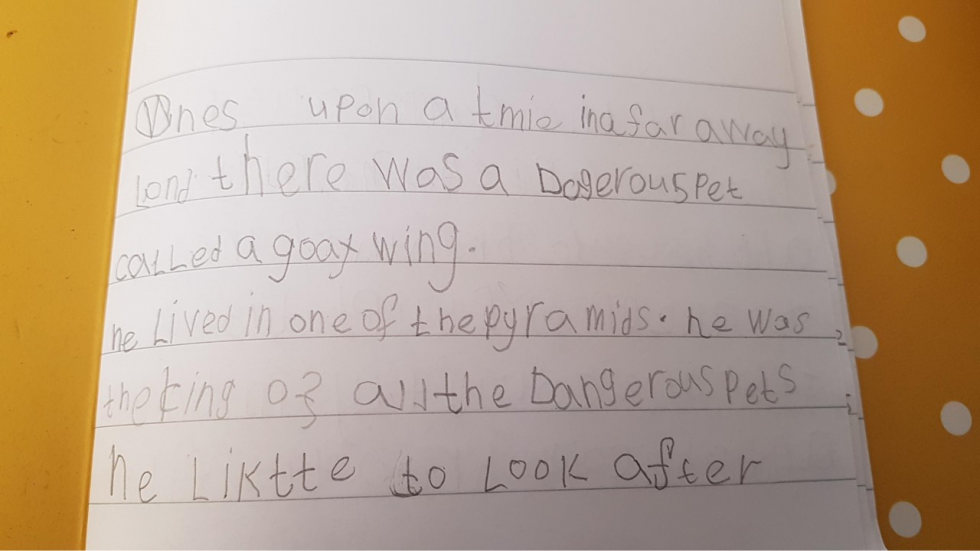 Ones upon a tmie in a far away
Land there was a Dagerous Pet
caLLed a goat wing.
he Lived in one of the pyramids. he was
the king of all the Dangerous Pets
he Liktte to Look after